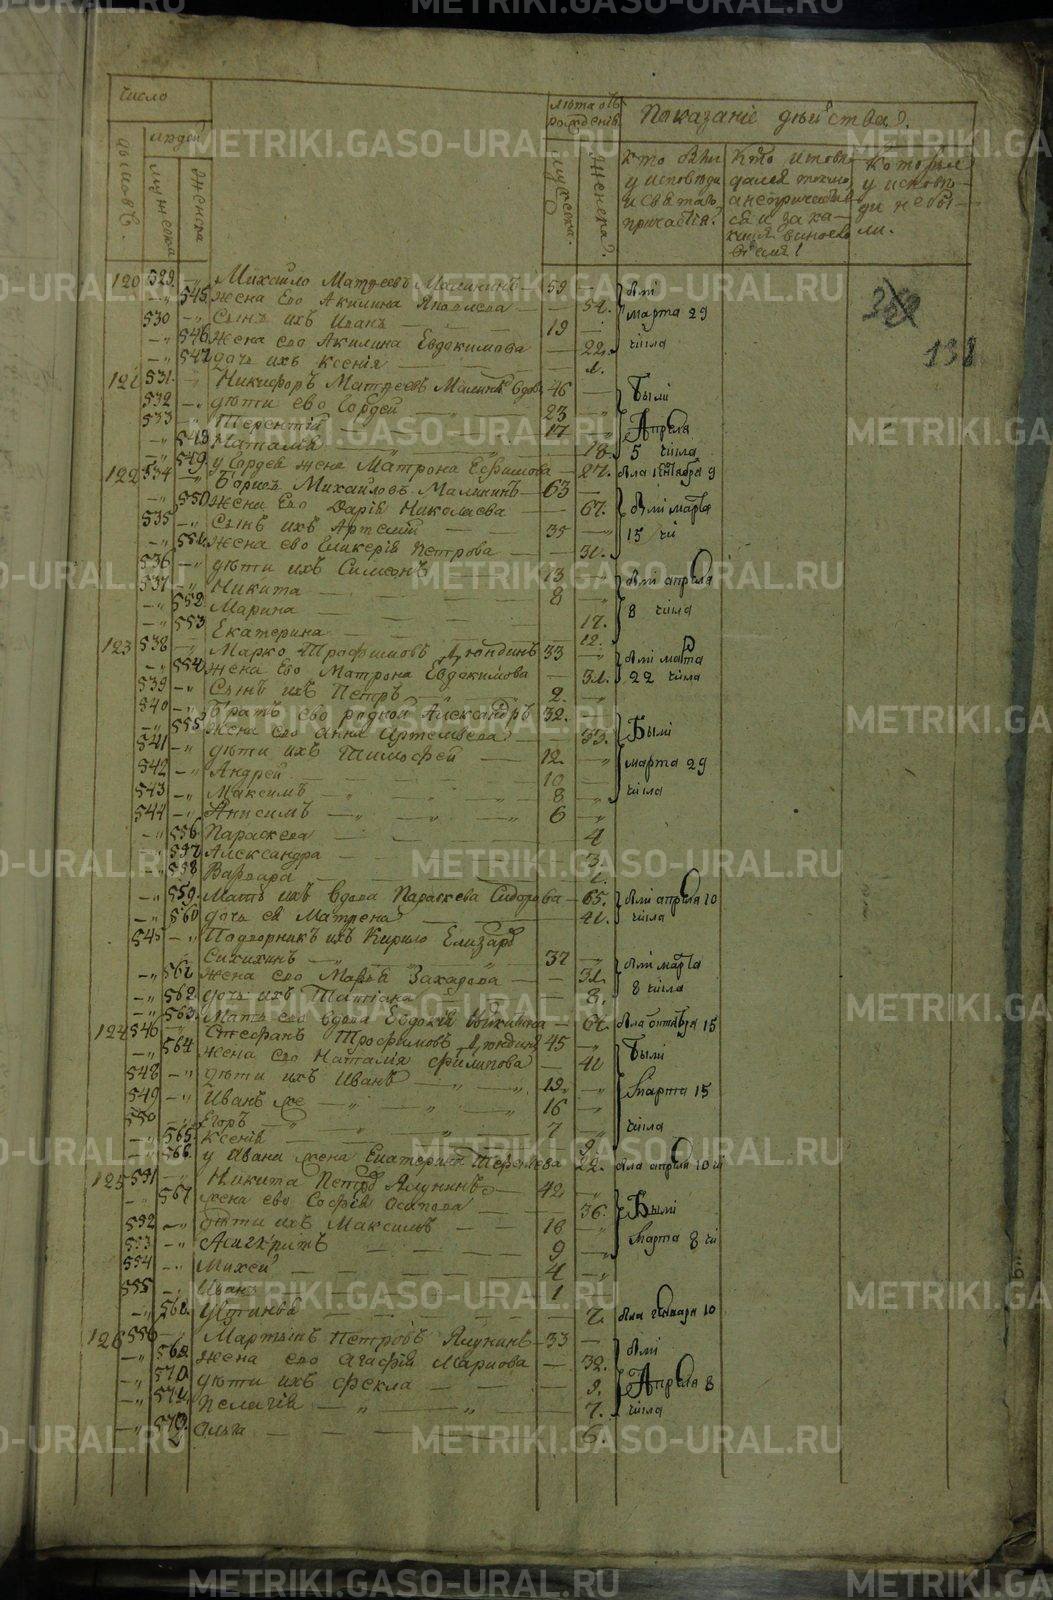 число
людей
лѣта отъ рожденiя
Показанiе дѣйства.
дворовъ.
мужеска
женска
мужеска.
женска.
кто были у исповѣди и святаго причастiя.
Кто исповѣдался токмо, а не причастился и за каким винословием
Которыя у исповѣди не были.
269
138
120 529 -„ Михайло Матвеевъ Малининъ — 59 -
-„ 545 жена Ево Акилина Яковлева — 51. были
530 -„ Сынъ ихъ Иванъ — 19 - марта 29
-„ 546 жена ево Акилина Евдокимова — 22. числа
-„ 547 дочь ихъ Ксенiя — 1.
121 531. -„ Никифоръ Матвеевъ Малининъ вдовъ 46 — Были
532 -„ дѣти ево Гордей — 23 -„
533 -„ Терентiй — 17 -„ Апреля
-„ 548 Наталiя — 18. 5 числа
-„ 549. у Гордея жена Матрона Ефимова — 27. была генваря 9
122 534 -„ Борисъ Михайловъ Малининъ — 63 —
-„ 550 жена Ево Дарiя Николаева — 67. были марта
535 -„ Сынъ ихъ Артемiй — 35 — 15 чи
-„ 551 жена ево Гликерiя Петрова — 31.
536 -„ дѣти ихъ Симеонъ — 13 -„ были апреля
537 -„ Никита — 8 -„
-„ 552 Марина — 17. 8 числа
-„ 553 Екатерина — 12.
123 538 -„ Марко Трофимовъ Дюндинъ 33 -„ были марта
-„ 554 жена Ево Матрона Евдокимова — 31. 22 числа
539 -„ Сынъ ихъ Петръ — 2. -„
540 -„ Братъ ево родной Александръ 32. — Были
-„ 555 жена ево Анна Артемьева — 33.
541 -„ дѣти ихъ Тимофей — 12. -„ марта 29
542 -„ Андрей — 10 —
543 -„ Максимъ — 8 -„ числа
544 -„ Анисимъ — 6 -„
-„ 556 Параскева — 4
-„ 557 Александра — 3.
-„ 558 Варвара — 1.
-„ 559. Мать ихъ вдова Параскева Сидорова — 65. были апреля 10
-„ 560 дочь ея Матрена — 41. числа
545 -„ Подворникъ ихъ Кирило Елизаровъ
Сихихинъ — 37 — были марта
-„ 561 жена ево Марья Захарова — 31. 8 числа
-„ 562 дочь ихъ Татiана — 8.
-„ 563. Мать ево вдова Евдокiя Никитина — 61. была октября 15
124 546 -„ Стефанъ Трофимовъ Дюндинъ 45 -„ Были
-„ 564 жена ево Наталiя Филипова — 41
548 -„ дѣти ихъ Иванъ — 19. -„
549 -„ Иванъ же — 16 -„ Марта 15
550 -„ Егоръ — 7 -„ числа
-„ 565. Ксенiя — 9.
-„ 566 у Ивана жена Екатерина — 22. была апреля 10 чi
125 551 -„ Никита Петровъ Ялунинъ — 42 -„
-„ 567 жена ево Софiя Осипова — 36. Были
552 -„ дѣти ихъ Максимъ — 16 -„
553 -„ Асигкритъ — 9 -„ Марта 8 чi
554 -„ Михей — 4 -„
555 -„ Иванъ — 1
-„ 568. Устинья — 7. была генваря 10
126 556 -„ Мартынъ Петровъ Ялунинъ — 33 — были
-„ 569. жена ево Агафiя Маркова — 32.
-„ 570. дѣти ихъ Фекла — 9. Апреля 8
-„ 571. Пелагiя — 7. числа
-„ 572. Ольга — 6.
METRIKI.GASO-URAL.RU